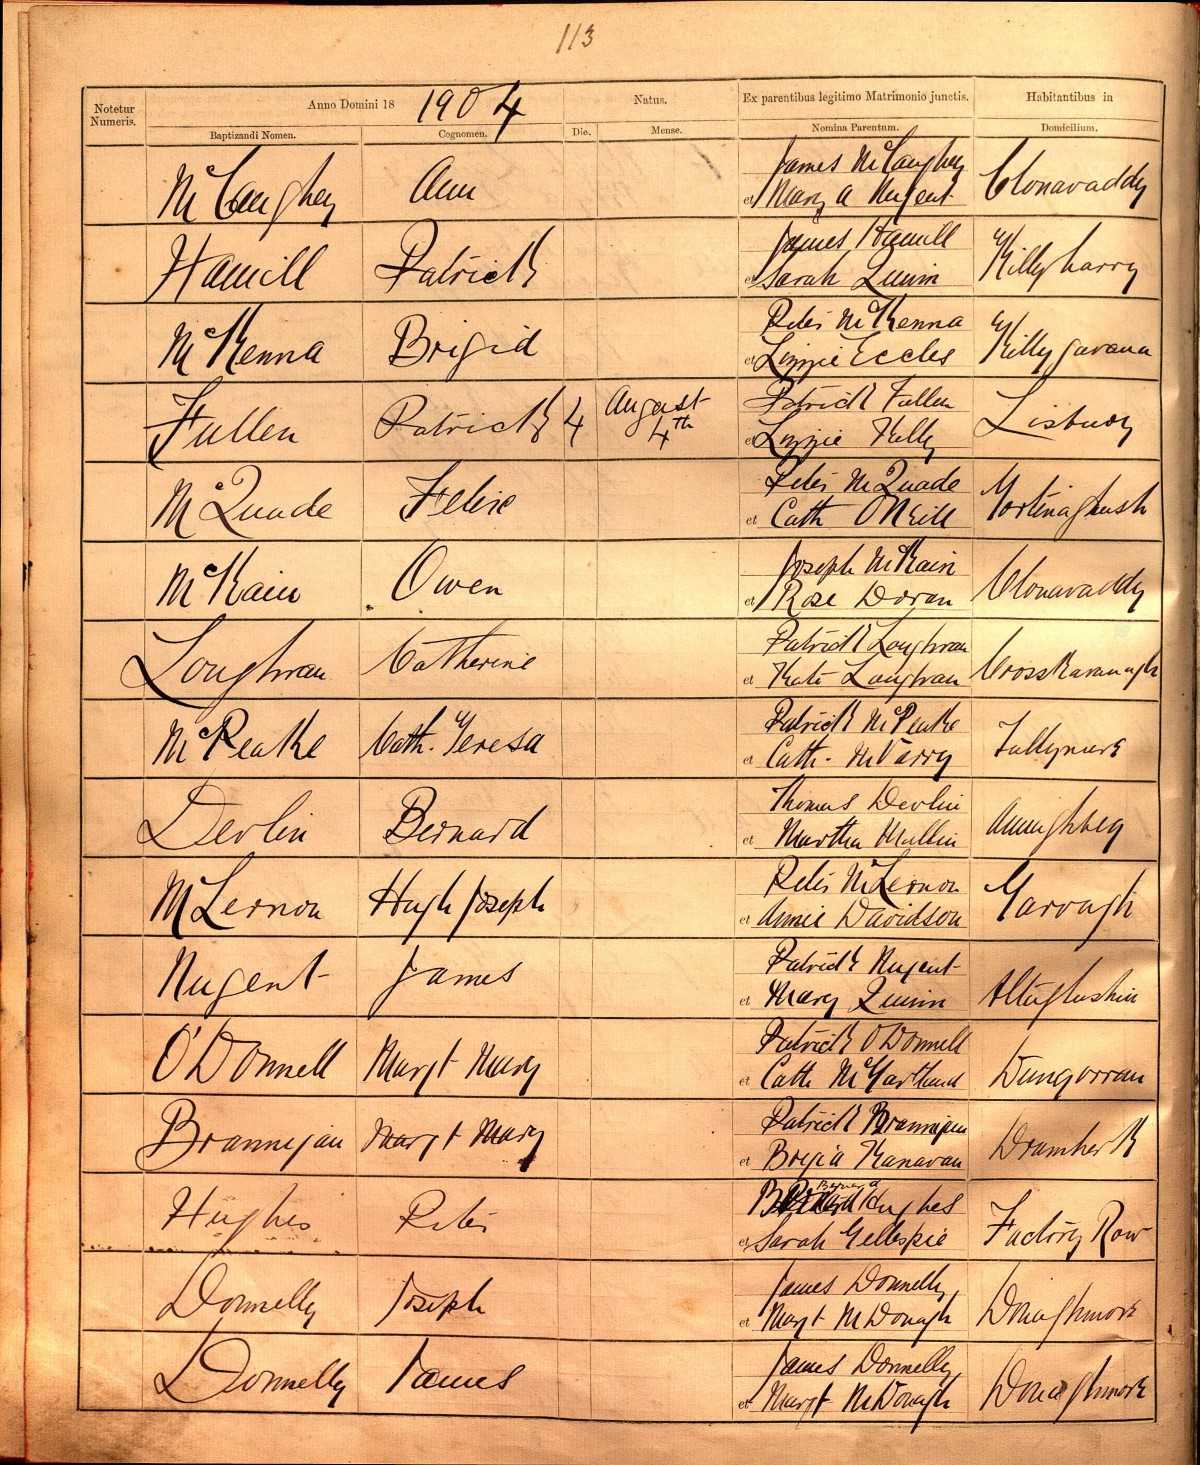 113
Notetur Numeris.
Anno Domini 18 1904
Natus.
Ex parentibus legitimo Matrimonio junctis.
Habitantibus in
Baptizandi Nomen.
Cognomen.
Die.
Mense.
Nomina Parentum.
Domicilium.
McCaughey Ann James McCaughey
et Mary A Nugent Clonavaddy
Hamill Patrick James Hamill
et Sarah Quinn Killyharry
McKenna Brigid Peter McKenna
et Lizzie Eccles Killygavana
Fullen Patrick 4 August 4th Patrick Fullen
et Lizzie Kelly Lisbuoy
McQuade Felix Peter McQuade
et Cath ONeill Gortinaglush
McKain Owen Joseph McKain
et Rose Doran Clonavaddy
Loughran Catherine Patrick Loughran
et Kate Loughran CrossKavanagh
McPeake Cath. Teresa Patrick McPeake
et Cath. McVarry Tullynure
Devlin Bernard Thomas Devlin
et Martha Mullin Annaghbeg
McLernon Hugh Joseph Peter McLernon
et Annie Davidson Garvagh
Nugent James Patrick Nugent
et Mary Quinn Altaglushin
O'Donnell Margt Mary Patrick ODonnell
et Cath McGartland Dungorran
Brannigan Margt Mary Patrick Brannigan
et Brigid Kanavan Dramhirk
Hughes Peter Bernard Hughes
et Sarah Gillespie Factory Row
Donnelly Joseph James Donnelly
et Margt McDonagh Donaghmore
Donnelly James James Donnelly
et Margt McDonagh Donaghmore